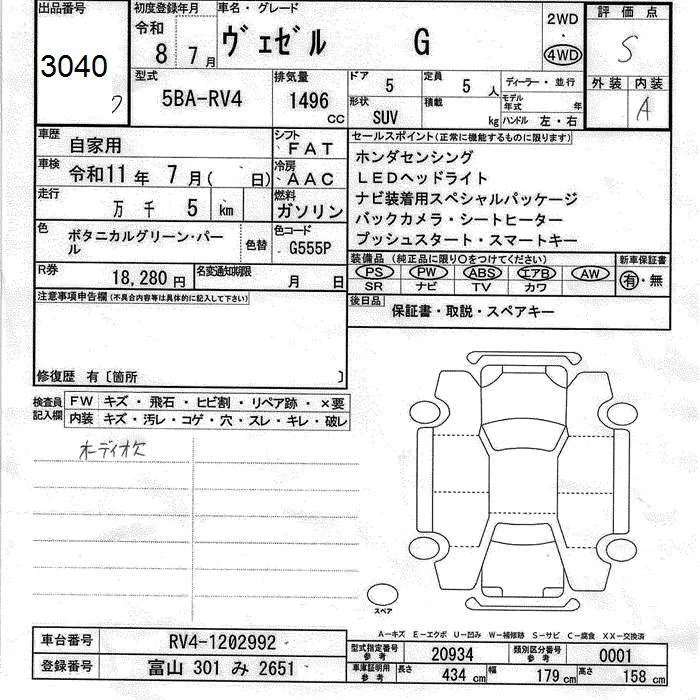 出品番号
3040
初度登録年月
令和
8 7月
車名・グレード
ヴェゼル G
2WD
・
4WD
評価点
S
外装 内装
A
型式
5BA-RV4
排気量
1496
cc
ドア
5
定員
5 人
ディーラー・並行
形状
SUV
積載
kg
モデル年式 年
ハンドル 左・右
車歴
自家用
シフト
FAT
車検
令和11年 7月( 日)
冷房
AAC
走行
万 千 5 km
燃料
ガソリン
色
ボタニカルグリーン・パール
色替
色コード
G555P
R券
18,280 円
名変通知期限
月 日
セールスポイント(正常に機能するものに限ります)
ホンダセンシング
LEDヘッドライト
ナビ装着用スペシャルパッケージ
バックカメラ・シートヒーター
プッシュスタート・スマートキー
装備品 (純正品に限り○をつけてください)
新車保証書
PS PW ABS エアB AW
SR ナビ TV カワ
有・無
後日品
保証書・取説・スペアキー
注意事項申告欄 (不具合内容等は具体的に記入して下さい)
修復歴 有〔箇所 〕
検査員記入欄
FW キズ・飛石・ヒビ割・リペア跡・×要
内装 キズ・汚レ・コゲ・穴・スレ・キレ・破レ
オーディオ欠
スペア
A−キズ E−エクボ U−凹み W−補修跡 S−サビ C−腐食 XX−交換済
車台番号
RV4-1202992
登録番号
富山 301 み 2651
型式指定番号
参考
20934
類別区分番号
参考
0001
車庫証明用
参考
長さ 434 cm
幅 179 cm
高さ 158 cm